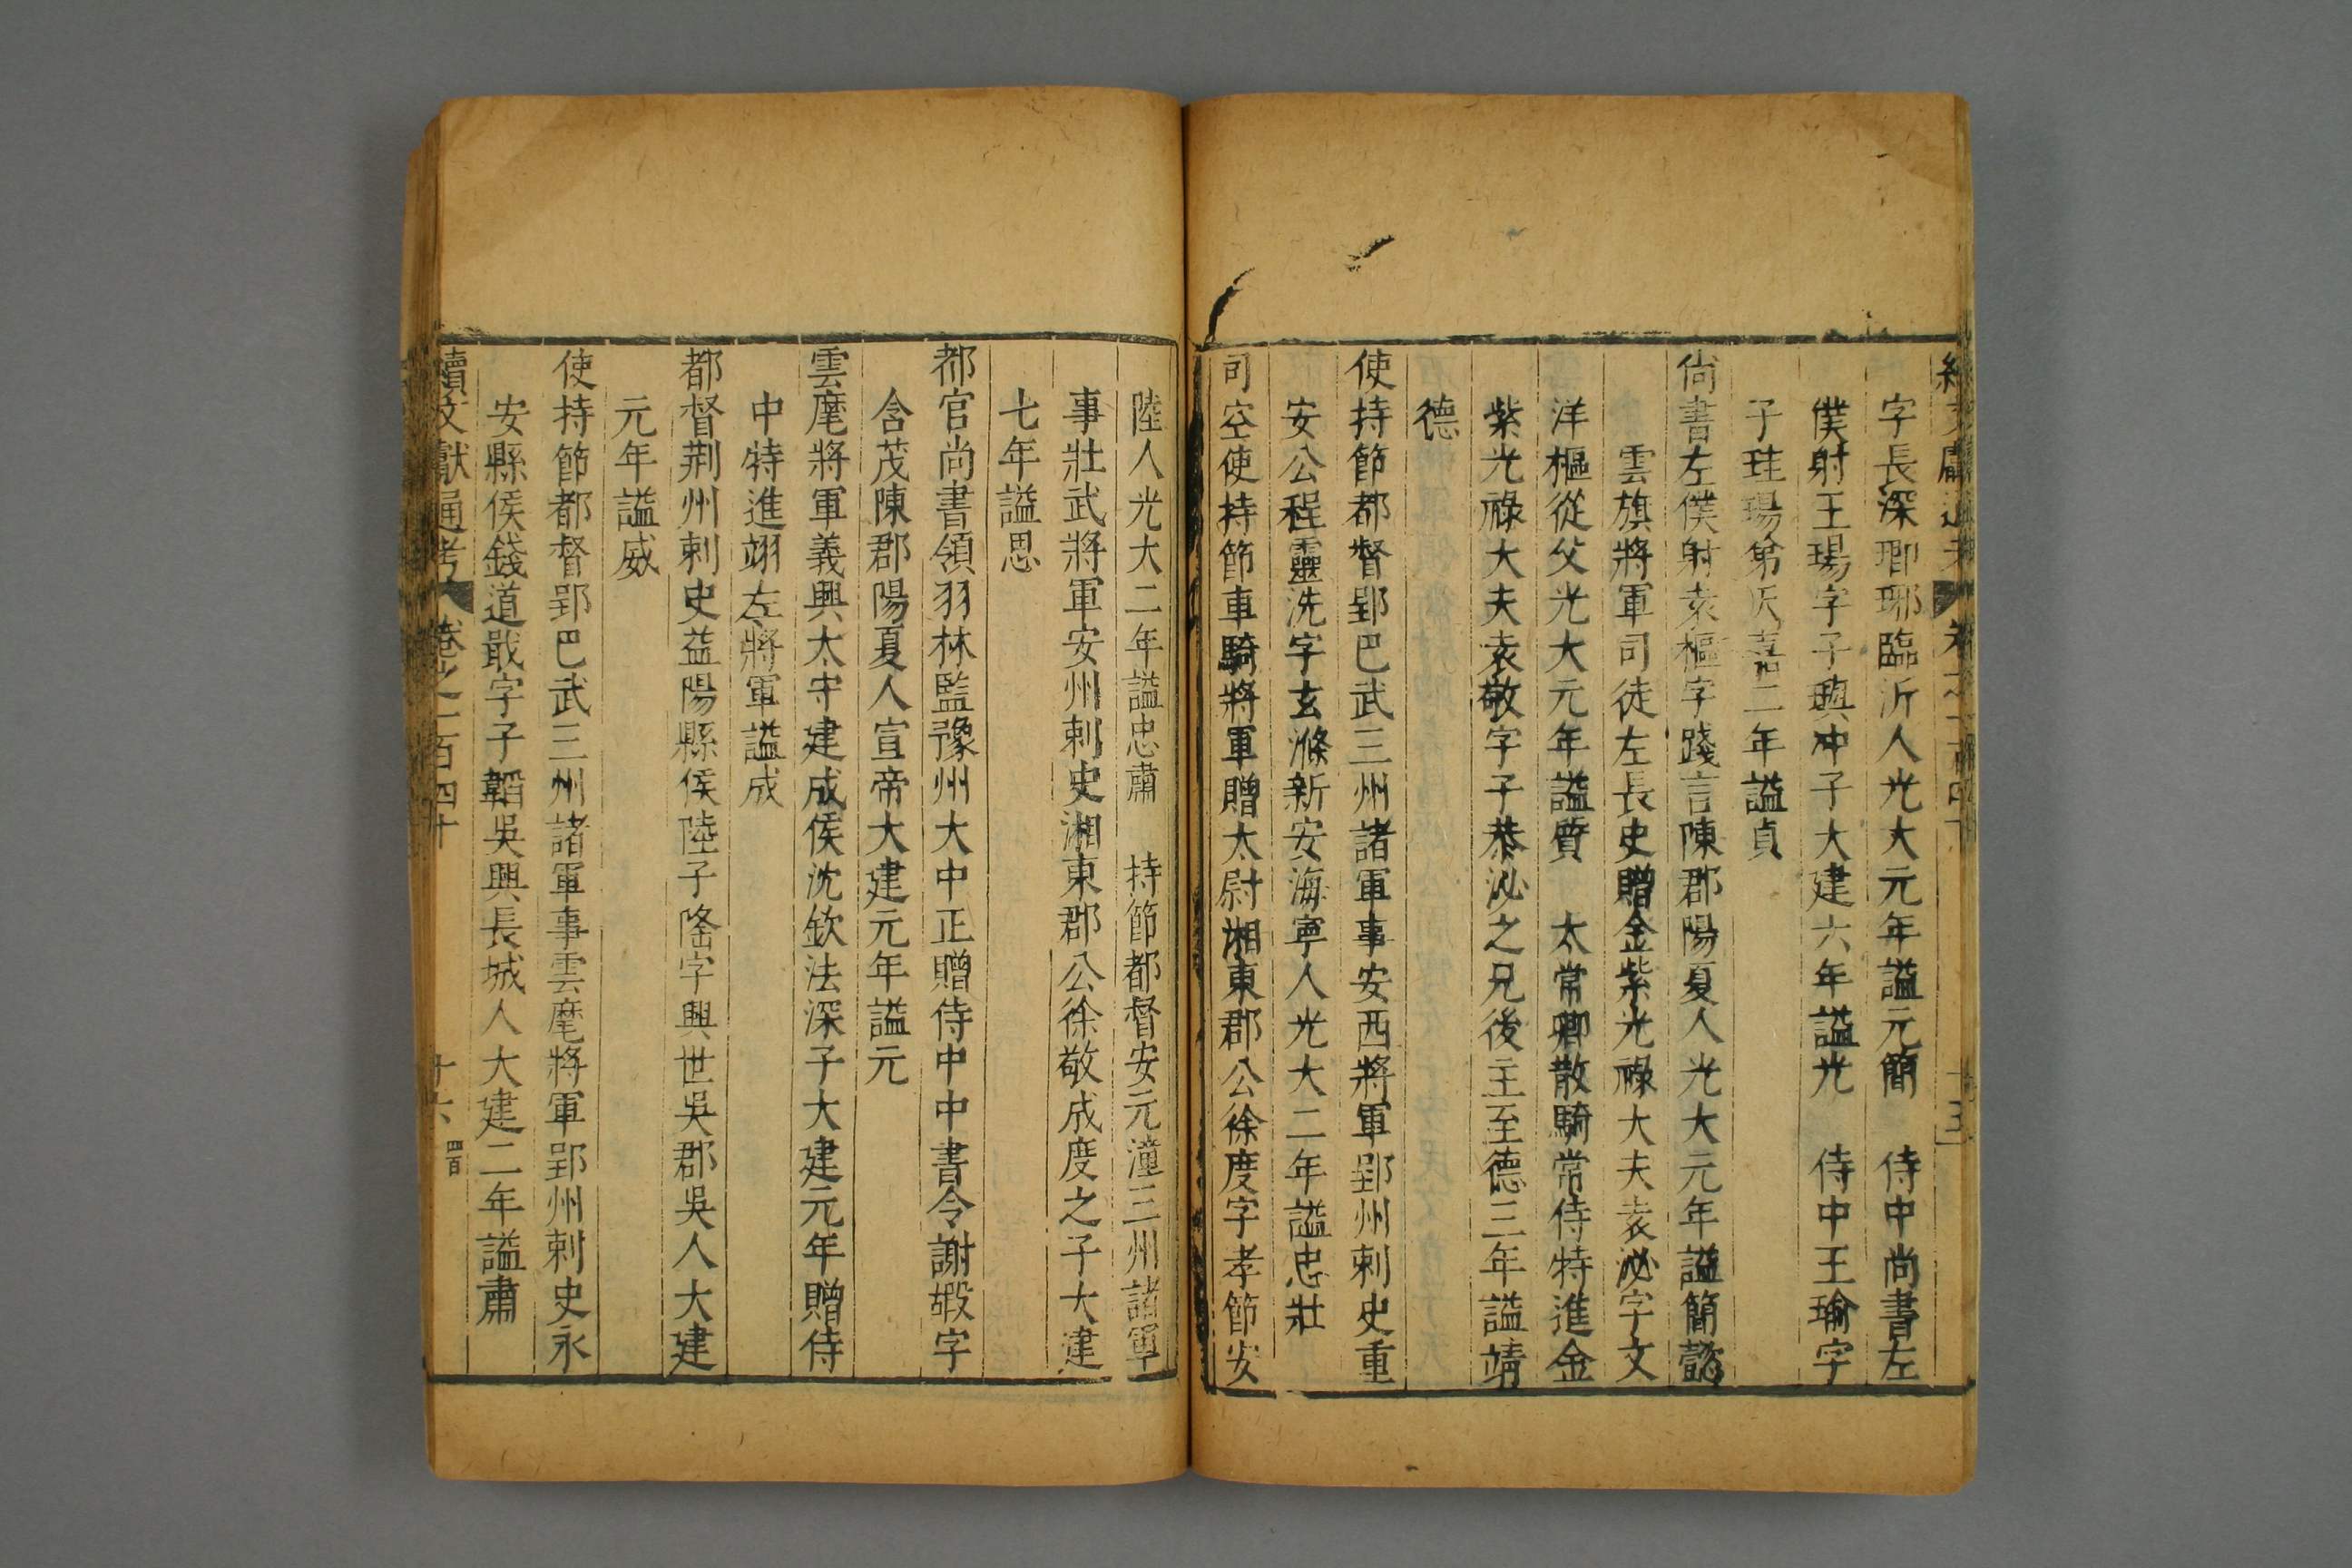 字長深瑯琊臨沂人光大元年謚元簡　侍中尚書左
僕射王瑒字子璵冲子大建六年謚光　侍中王瑜字
子珪瑒第天嘉二年謚貞
尚書左僕射袁樞字踐言陳郡陽夏人光大元年謚簡懿
雲旗將軍司徒左長史贈金紫光祿大夫袁泌字文
洋樞從父光大元年謚質　太常卿散騎常侍特進金
紫光祿大夫袁敬字子恭泌之兄後主至德三年謚靖
德
使持節都督郢巴武三州諸軍事安西將軍郢州刺史重
安公程靈洗字玄滌新安海寧人光大二年謚忠壯
司空使持節車騎將軍贈太尉湘東郡公徐度字孝節安
陸人光大二年謚忠肅　持節都督安元潼三州諸軍
事壯武將軍安州刺史湘東郡公徐敬成度之子大建
七年謚思
都官尚書領羽林監豫州大中正贈侍中中書令謝嘏字
含茂陳郡陽夏人宣帝大建元年謚元
雲麾將軍義興太守建成侯沈欽法深子大建元年贈侍
中特進翊左將軍謚成
都督荆州刺史益陽縣侯陸子隆字興世吳郡吳人大建
元年謚威
使持節都督郢巴武三州諸軍事雲麾將軍郢州刺史永
安縣侯錢道戢字子韜吳興長城人大建二年謚肅
續文獻通考　卷之一百四十　十六　四百